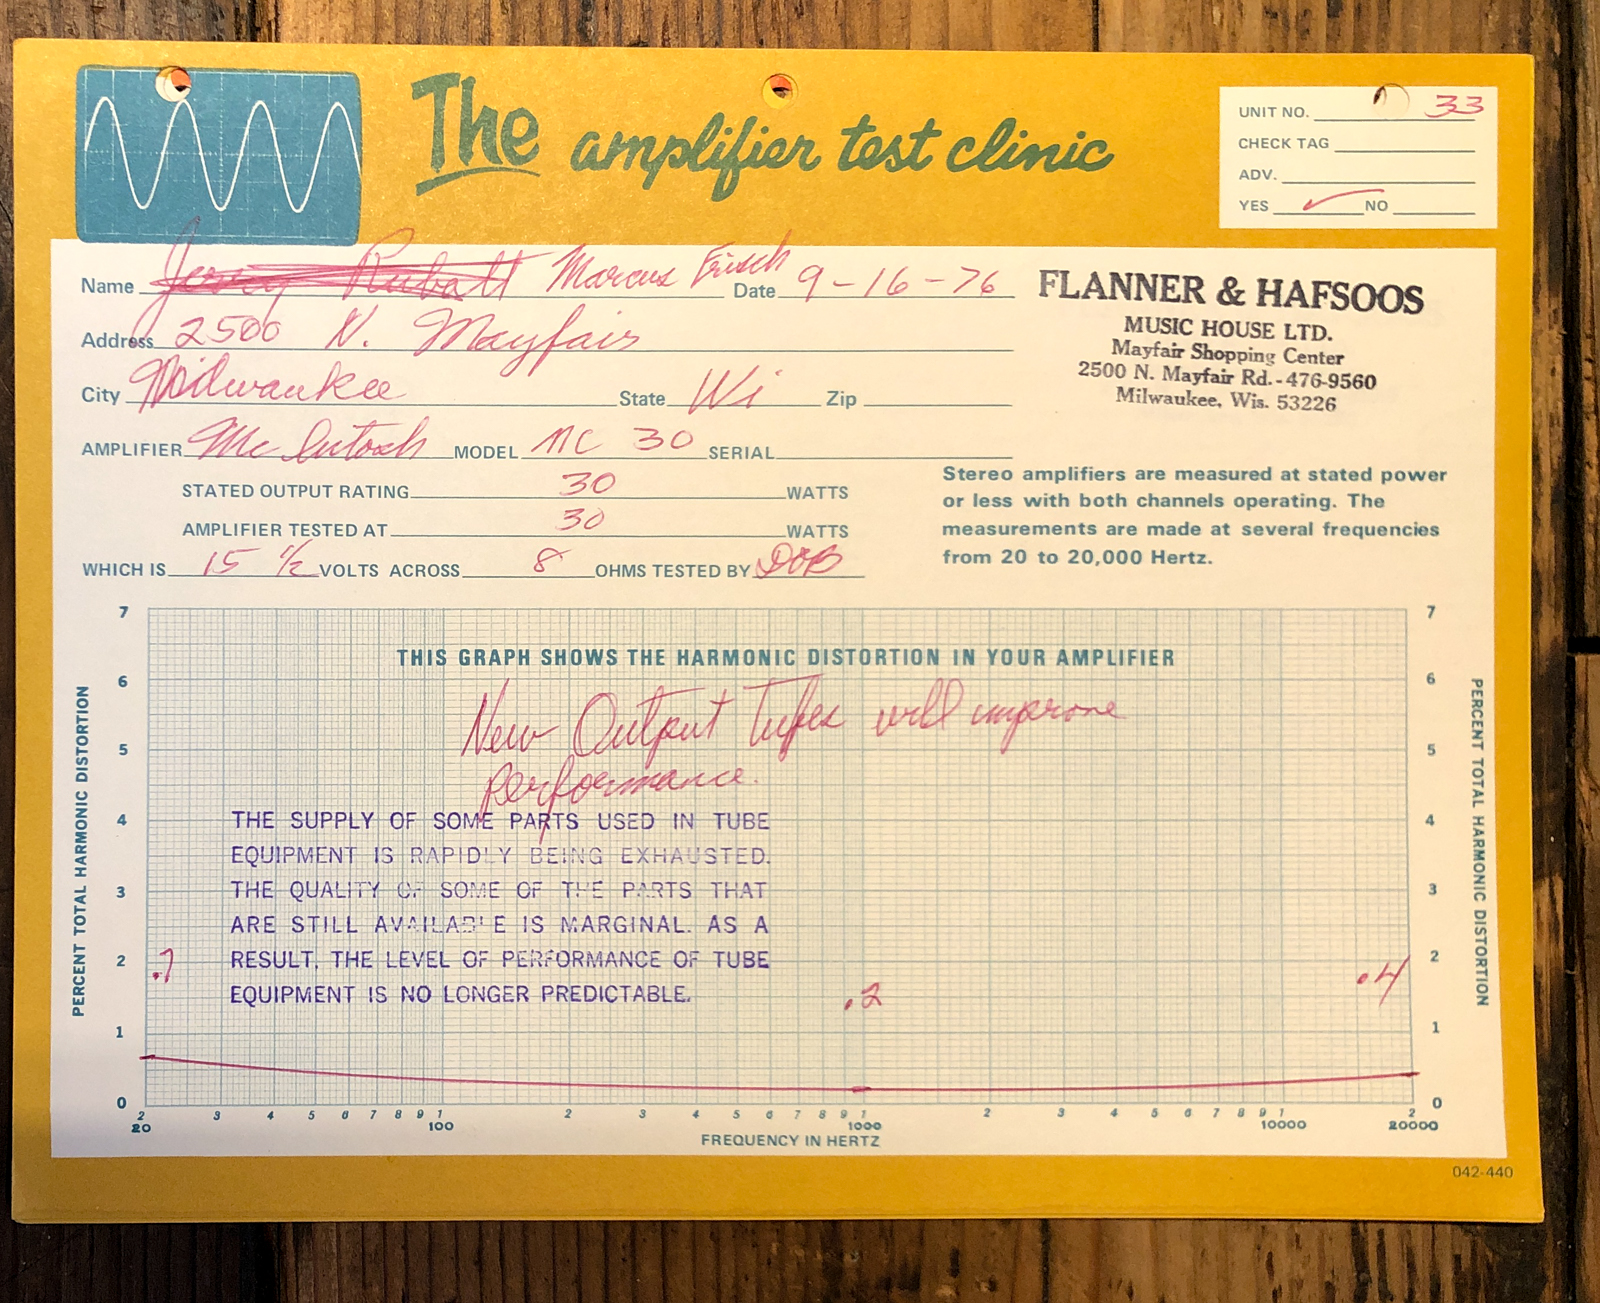 The amplifier test clinic
UNIT NO. 33
CHECK TAG
ADV.
YES ✓ NO
Name Marcus Frisch Date 9-16-76
Address 2500 N. Mayfair
City Milwaukee State Wi Zip
AMPLIFIER McIntosh MODEL MC 30 SERIAL
STATED OUTPUT RATING 30 WATTS
AMPLIFIER TESTED AT 30 WATTS
WHICH IS 15 1/2 VOLTS ACROSS 8 OHMS TESTED BY
FLANNER & HAFSOOS
MUSIC HOUSE LTD.
Mayfair Shopping Center
2500 N. Mayfair Rd.-476-9560
Milwaukee, Wis. 53226
Stereo amplifiers are measured at stated power
or less with both channels operating. The
measurements are made at several frequencies
from 20 to 20,000 Hertz.
THIS GRAPH SHOWS THE HARMONIC DISTORTION IN YOUR AMPLIFIER
New Output Tubes will improve
performance.
THE SUPPLY OF SOME PARTS USED IN TUBE
EQUIPMENT IS RAPIDLY BEING EXHAUSTED.
THE QUALITY OF SOME OF THE PARTS THAT
ARE STILL AVAILABLE IS MARGINAL. AS A
RESULT, THE LEVEL OF PERFORMANCE OF TUBE
EQUIPMENT IS NO LONGER PREDICTABLE.
.7 .2 .4
PERCENT TOTAL HARMONIC DISTORTION
7
6
5
4
3
2
1
0
PERCENT TOTAL HARMONIC DISTORTION
7
6
5
4
3
2
1
0
2 3 4 5 6 7 8 9 1 2 3 4 5 6 7 8 9 1 2 3 4 5 6 7 8 9 1 2
20 100 1000 10000 20000
FREQUENCY IN HERTZ
042-440